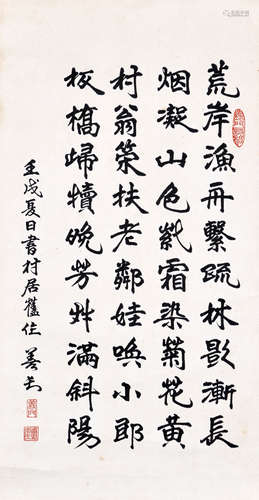 荒岸漁舟繫疏林影漸長
烟凝山色紫霜染菊花黃
村翁策扶老鄰娃喚小郎
板橋歸犢晚芳艸滿斜陽
壬戌夏日書村居舊作